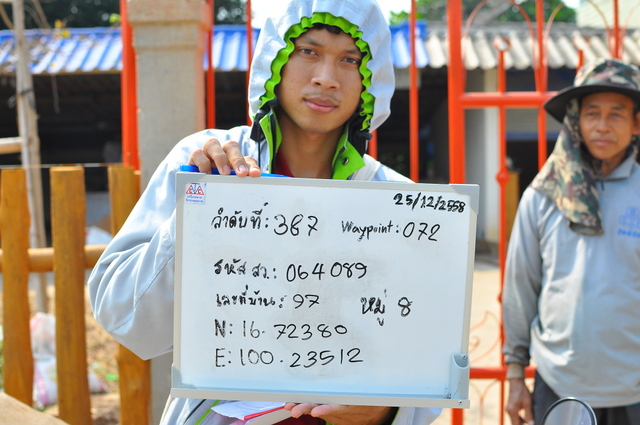 25/12/2558
ลำดับที่: 367 Waypoint: 072
รหัส สว.: 064089
เลขที่บ้าน: 97 หมู่ 8
N: 16.72380
E: 100.23512